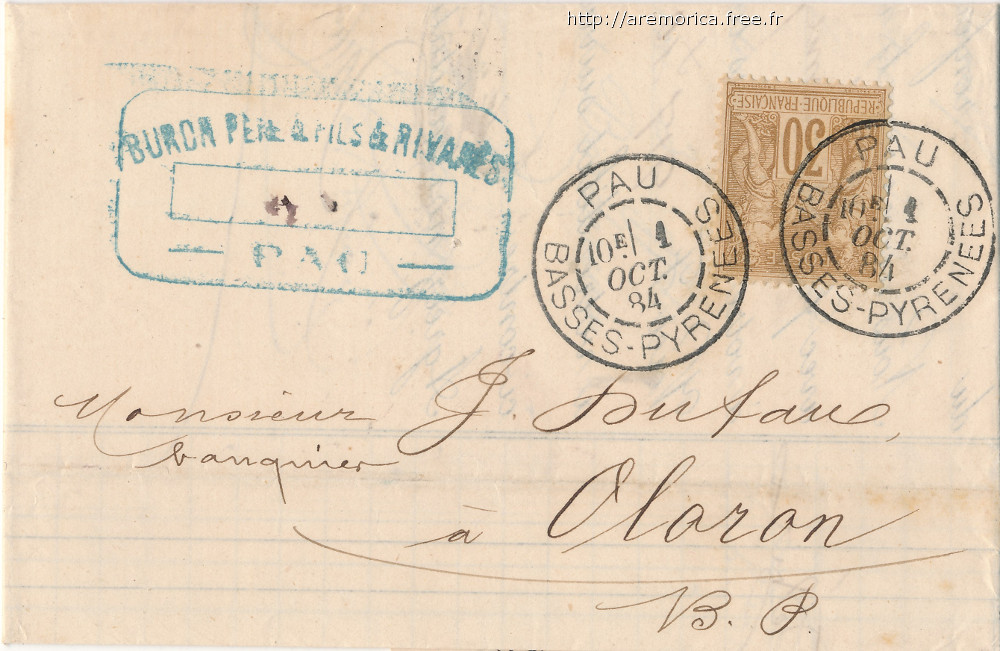 http://aremorica.free.fr
BURON PERE & FILS & RIVARES
PAU
REPUBLIQUE·FRANÇAISE
30
PAU
10E 1
OCT.
84
BASSES-PYRENEES
PAU
10E 1
OCT.
84
BASSES-PYRENEES
Monsieur J. Dufau,
banquier
à Oloron
B. P.